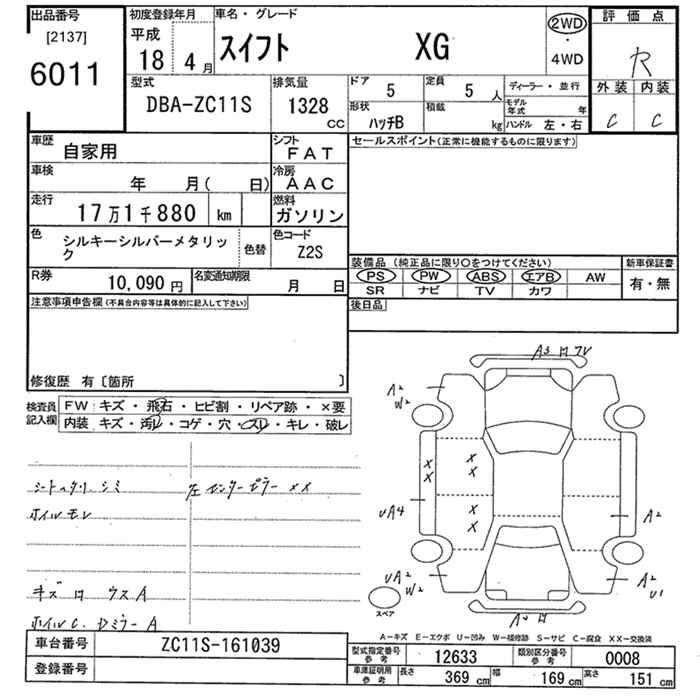 出品番号 初度登録年月 車名・グレード 2WD 評価点
[2137] 平成 ・
6011 18 4月 スイフト XG 4WD R
型式 排気量 ドア 5 定員 5人 ディーラー・並行 外装 内装
DBA-ZC11S 1328 CC 形状 ハッチB 積載 kg モデル年式 年 C C
ハンドル 左・右
車歴 自家用 シフト FAT セールスポイント(正常に機能するものに限ります)
車検 年 月( 日) 冷房 AAC
走行 17万1千880 km 燃料 ガソリン
色 シルキーシルバーメタリック 色替 色コード Z2S
装備品(純正品に限り○をつけてください) 新車保証書
R券 10,090円 名変通知期限 月 日 PS PW ABS エアB AW 有・無
SR ナビ TV カワ
注意事項申告欄(不具合内容等は具体的に記入して下さい) 後日品
修復歴 有〔箇所 〕
検査員記入欄 FW キズ・飛石・ヒビ割・リペア跡・×要
内装 キズ・汚レ・コゲ・穴・スレ・キレ・破レ
左センターピラー XX
A2
W2
X X
X X
UA4
X X
A2
UA2
W2
A2
U1
スペア
A-キズ E-エクボ U-凹み W-補修跡 S-サビ C-腐食 XX-交換済
車台番号 ZC11S-161039
型式指定番号 参考 12633 類別区分番号 参考 0008
登録番号
車庫証明用 参考 長さ 369cm 幅 169cm 高さ 151cm